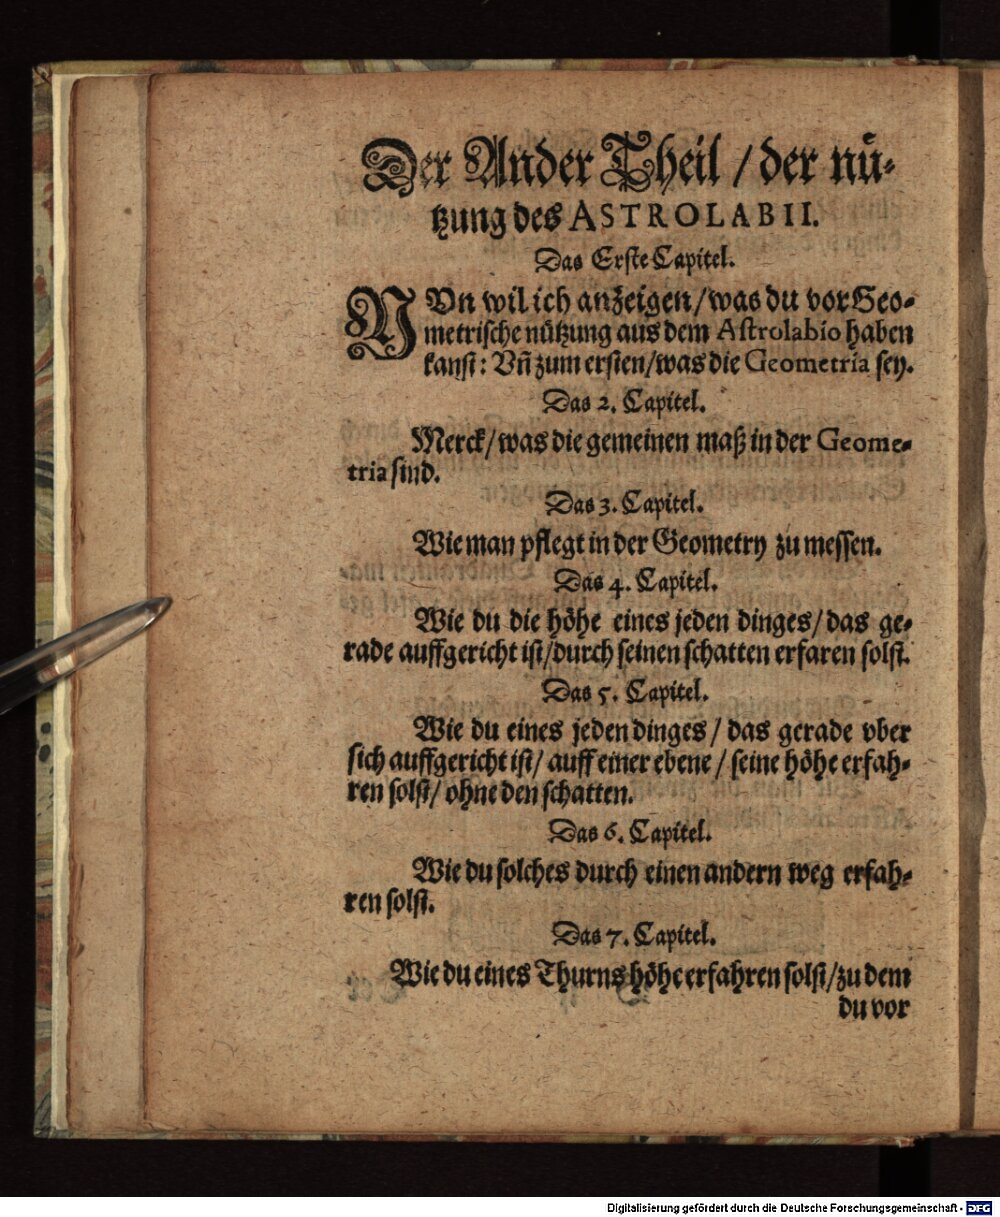 Der Ander Theil / der nü-
tzung des ASTROLABII.
Das Erste Capitel.
NVn wil ich anzeigen / was du vor Geo-
metrische nützung aus dem Astrolabio haben
kanst: Vñ zum ersten / was die Geometria sey.
Das 2. Capitel.
Merck / was die gemeinen maß in der Geome-
tria sind.
Das 3. Capitel.
Wie man pflegt in der Geometry zu messen.
Das 4. Capitel.
Wie du die höhe eines jeden dinges / das ge-
rade auffgericht ist / durch seinen schatten erfaren solst.
Das 5. Capitel.
Wie du eines jeden dinges / das gerade vber
sich auffgericht ist / auff einer ebene / seine höhe erfah-
ren solst / ohne den schatten.
Das 6. Capitel.
Wie du solches durch einen andern weg erfah-
ren solst.
Das 7. Capitel.
Wie du eines Thurns höhe erfahren solst / zu dem
du vor
Digitalisierung gefördert durch die Deutsche Forschungsgemeinschaft - DFG